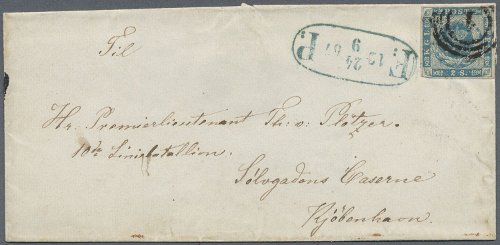 Til
Hr. Premierlieutenant Th: v: Plötzer.
10de Liniebatallion.
Sölvgadens Caserne
Kjöbenhavn.
F: P:
2 S.
1